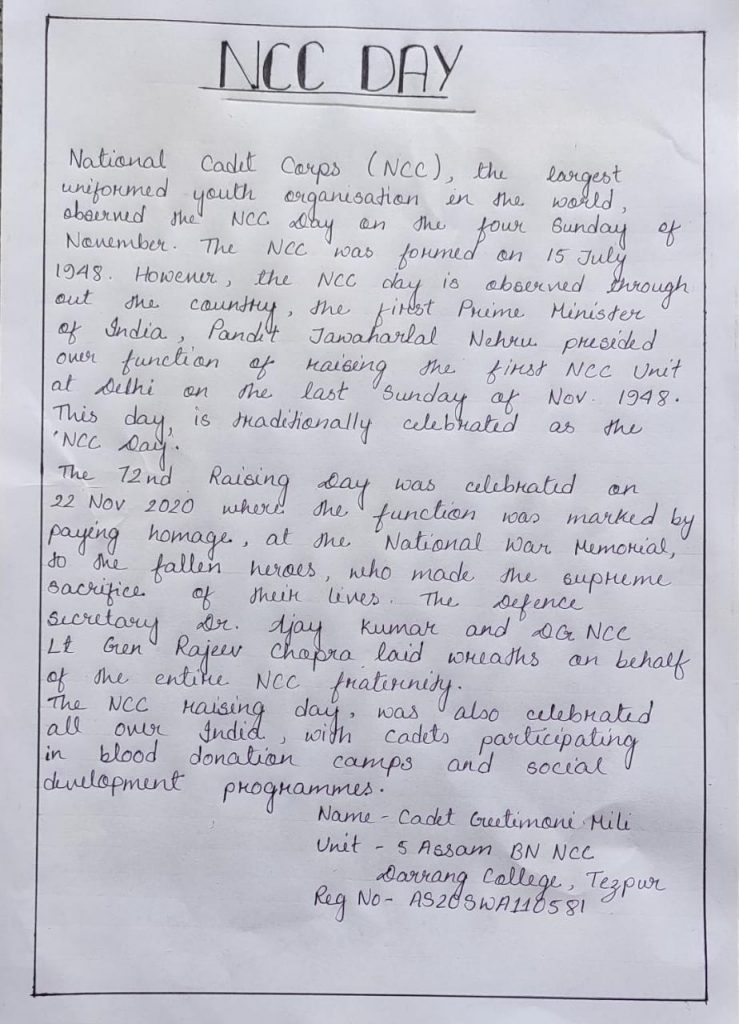 NCC DAY
National Cadet Corps (NCC), the largest
uniformed youth organisation in the world,
observed the NCC Day on the four Sunday of
November. The NCC was formed on 15 July
1948. However, the NCC day is observed through
out the country, the first Prime Minister
of India, Pandit Jawaharlal Nehru presided
over function of raising the first NCC Unit
at Delhi on the last Sunday of Nov. 1948.
This day, is traditionally celebrated as the
'NCC Day'.
The 72nd Raising Day was celebrated on
22 Nov 2020 where the function was marked by
paying homage, at the National War Memorial,
to the fallen heroes, who made the supreme
sacrifice of their lives. The Defence
secretary Dr. Ajay Kumar and DG NCC
Lt Gen Rajeev Chopra laid wreaths on behalf
of the entire NCC fraternity.
The NCC raising day, was also celebrated
all over India, with cadets participating
in blood donation camps and social
development programmes.
Name - Cadet Geetimoni Mili
Unit - 5 Assam BN NCC
Darrang College, Tezpur
Reg No- AS20SWA110581